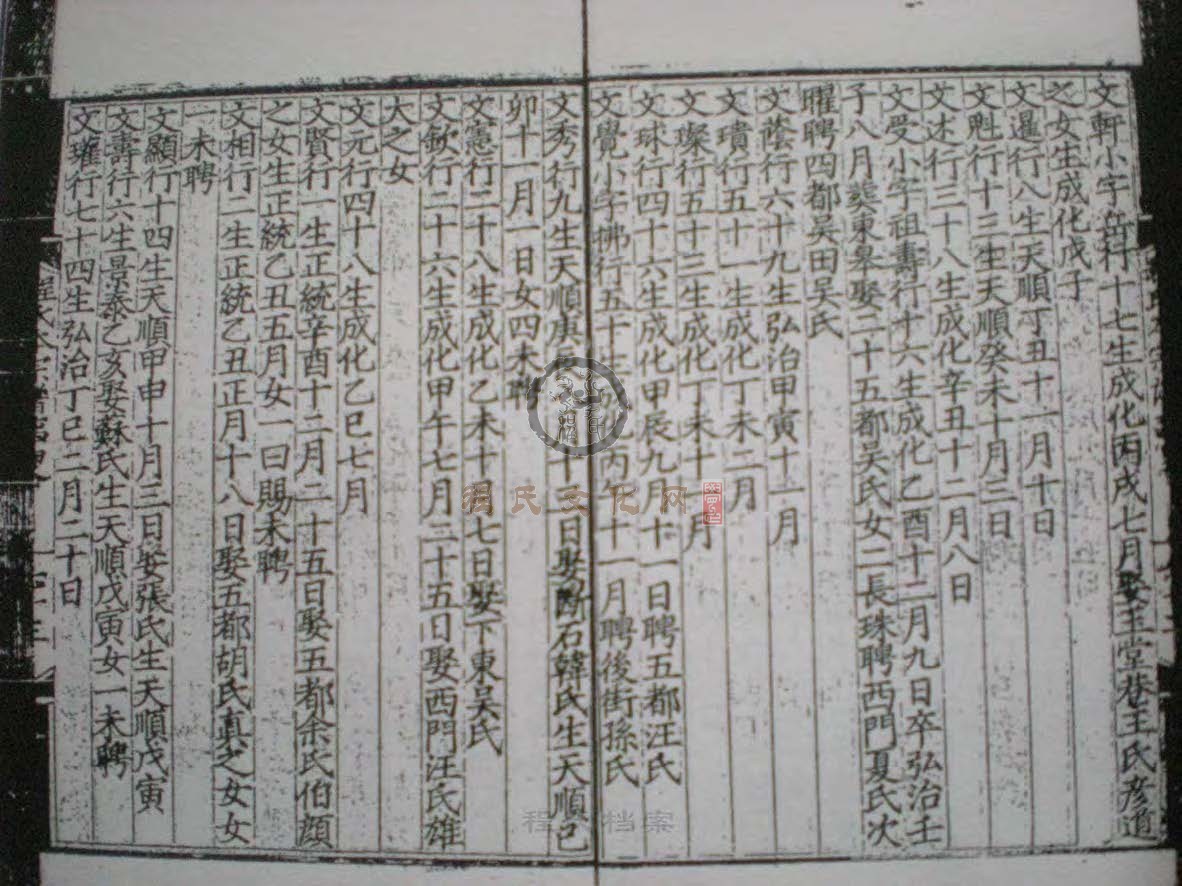 文軒小字 行十七生成化丙戌七月娶王堂巷王氏彦通
之女生成化戊子
文暹行八生天順丁丑十一月十日
文魁行十三生天順癸未十月三日
文述行三十八生成化辛丑十二月八日
文受小字祖壽行十六生成化乙酉十二月九日卒弘治壬
子八月葬東皋娶二十五都吴氏女二長珠聘西門夏氏次
曜聘四都吴田吴氏
文蔭行六十九生弘治甲寅十一月
文璝行五十一生成化丁未二月
文璨行五十三生成化丁未十一月
文球行四十六生成化甲辰九月十一日聘五都汪氏
文覺小字拂行五十生成化丙午十一月聘後街孫氏
文秀行九生天順庚 月十三日娶斷石韓氏生天順己
卯十一月一日女四未聘
文憲行二十八生成化乙未十月七日娶下東吴氏
文欽行二十六生成化甲午七月二十五日娶西門汪氏雄
大之女
文元行四十八生成化乙巳七月
文賢行一生正統辛酉十二月二十五日娶五都余氏伯顔
之女生正統乙丑五月女一曰賜未聘
文相行二生正統乙丑正月十八日娶五都胡氏真之女女
一未聘
文顯行十四生天順甲申十月三日娶張氏生天順戊寅
文壽行六生景泰乙亥娶蘇氏生天順戊寅女一未聘
文璀行七十四生弘治丁巳二月二十日
程氏文化网
程 档案